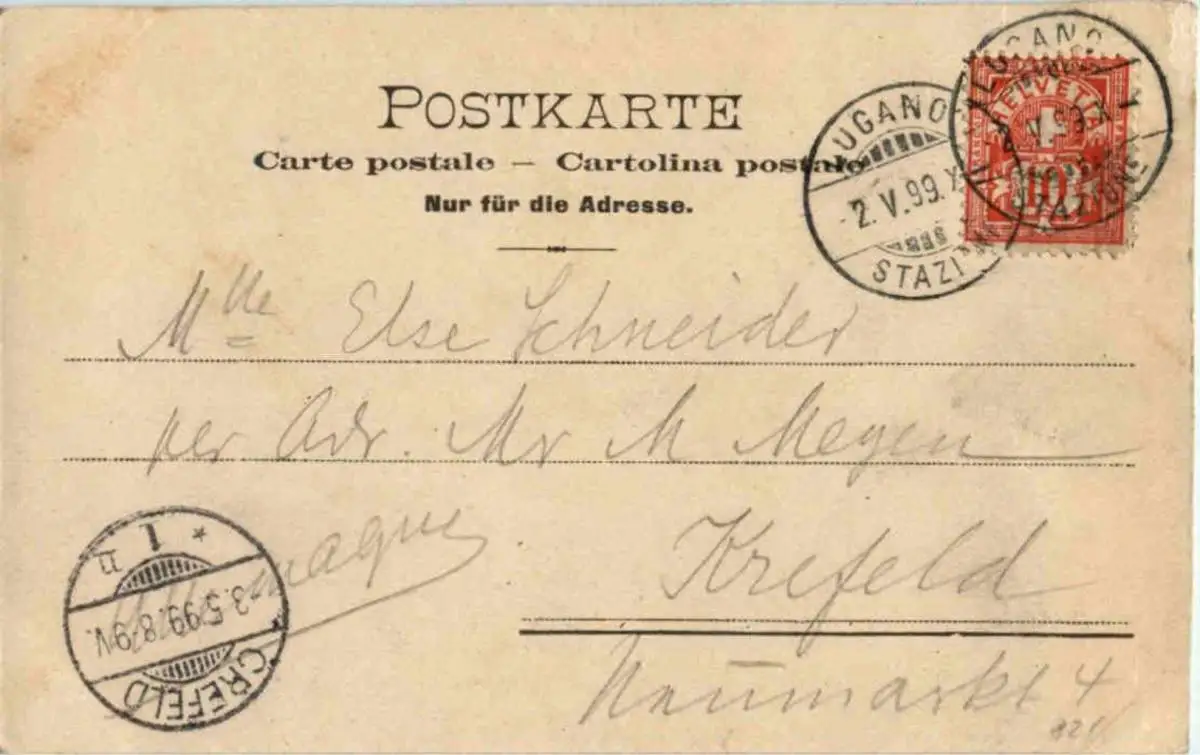 POSTKARTE
Carte postale – Cartolina postale
Nur für die Adresse.
LUGANO
2.V.99.X
STAZIONE
LUGANO
2.V.99.X
STAZIONE
HELVETIA
10
Mlle Else Schneider
per Adr. Mr M Meyen
Allemagne
Krefeld
Neumarkt 4
CREFELD
3.5.99.8-9V.
* 1 n